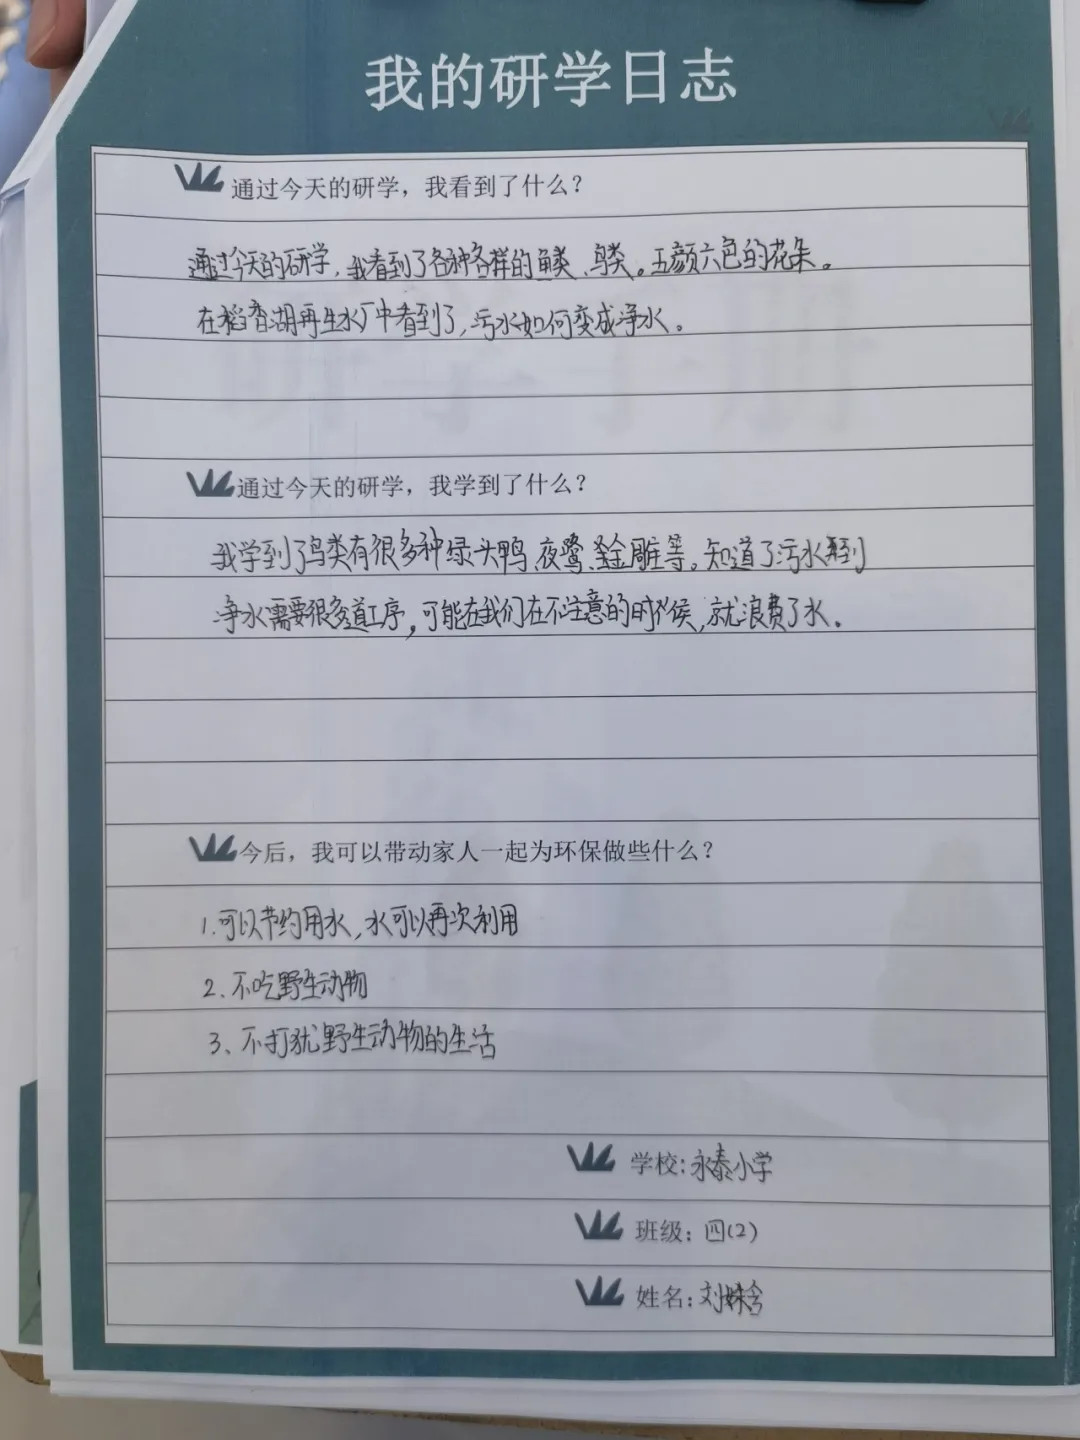 我的研学日志
通过今天的研学，我看到了什么？
通过今天的研学，我看到了各种各样的鱼类、鸟类。五颜六色的花朵。
在稻香湖再生水厂中看到了，污水如何变成净水。
通过今天的研学，我学到了什么？
我学到了鸟类有很多种绿头鸭、夜鹭、金雕等。知道了污水到
净水需要很多道工序，可能在我们在不注意的时候，就浪费了水。
今后，我可以带动家人一起为环保做些什么？
1.可以节约用水，水可以再次利用
2、不吃野生动物
3、不打犹野生动物的生活
学校：永泰小学
班级：四(2)
姓名：刘